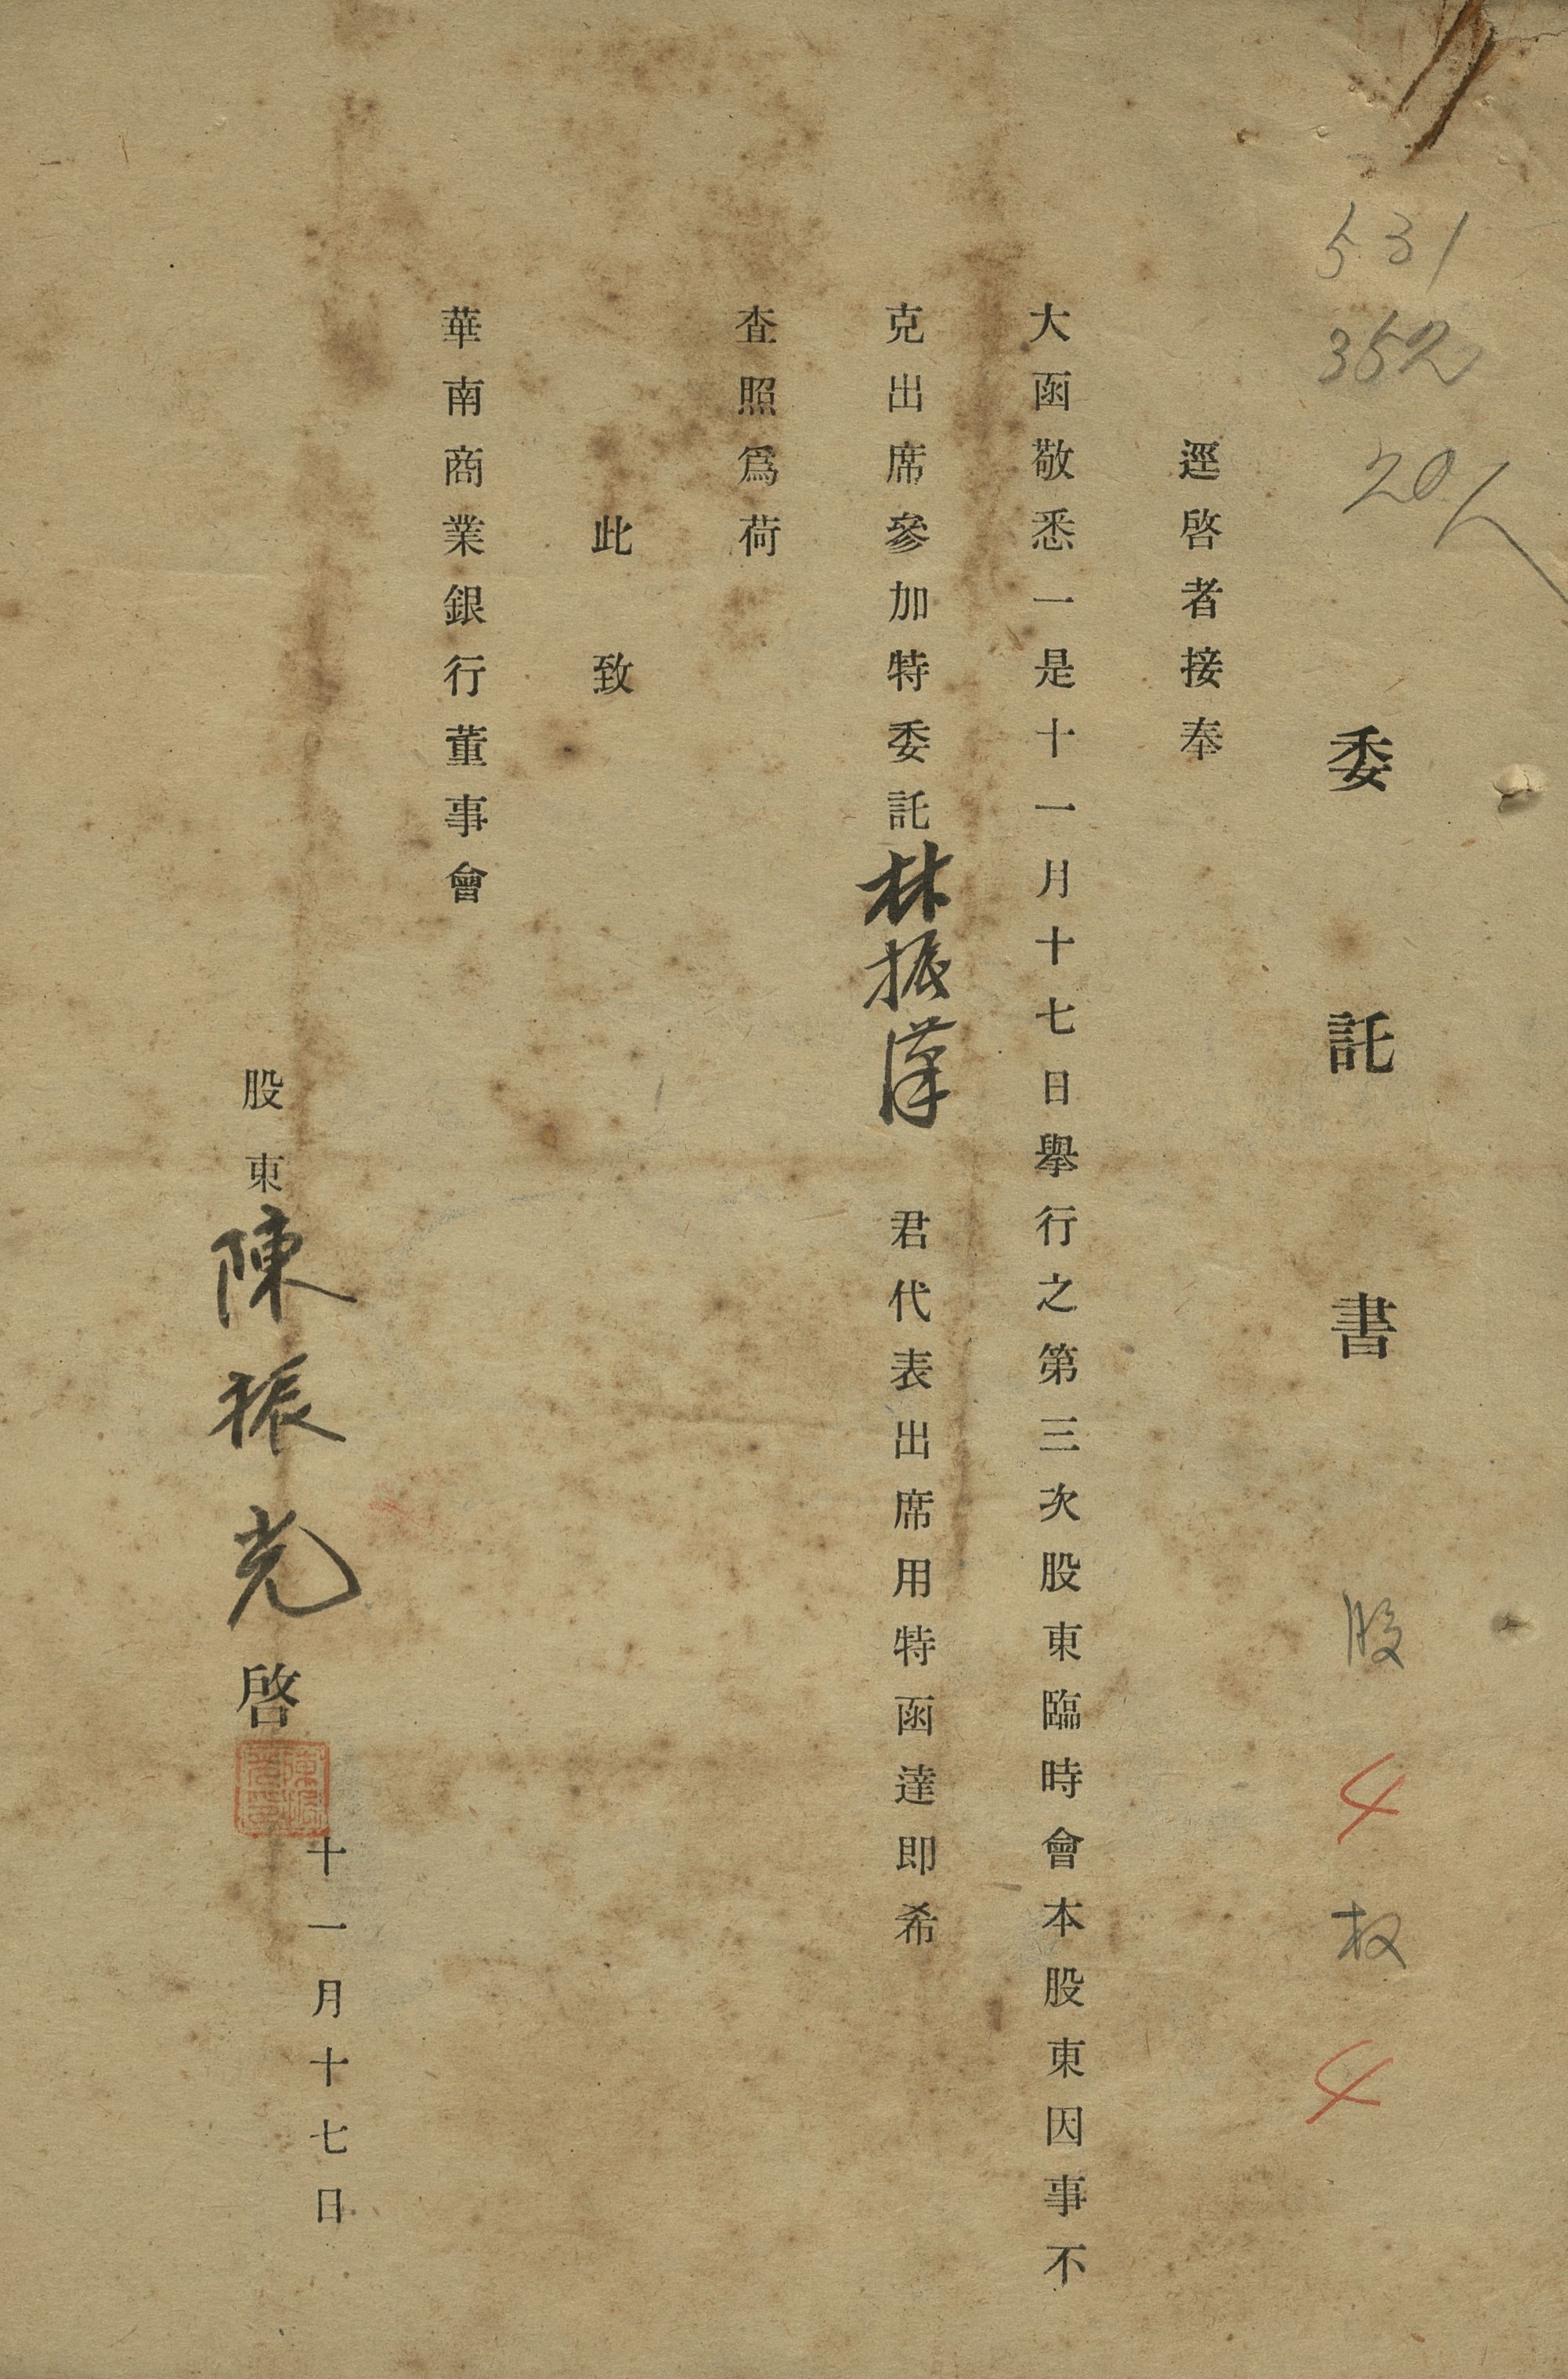 531
352
20人
委託書 股 4 权 4
逕啓者接奉
大函敬悉一是十一月十七日舉行之第三次股東臨時會本股東因事不
克出席參加特委託林振漢 君代表出席用特函達即希
查照爲荷
此致
華南商業銀行董事會
股東陳振光啓
十一月十七日